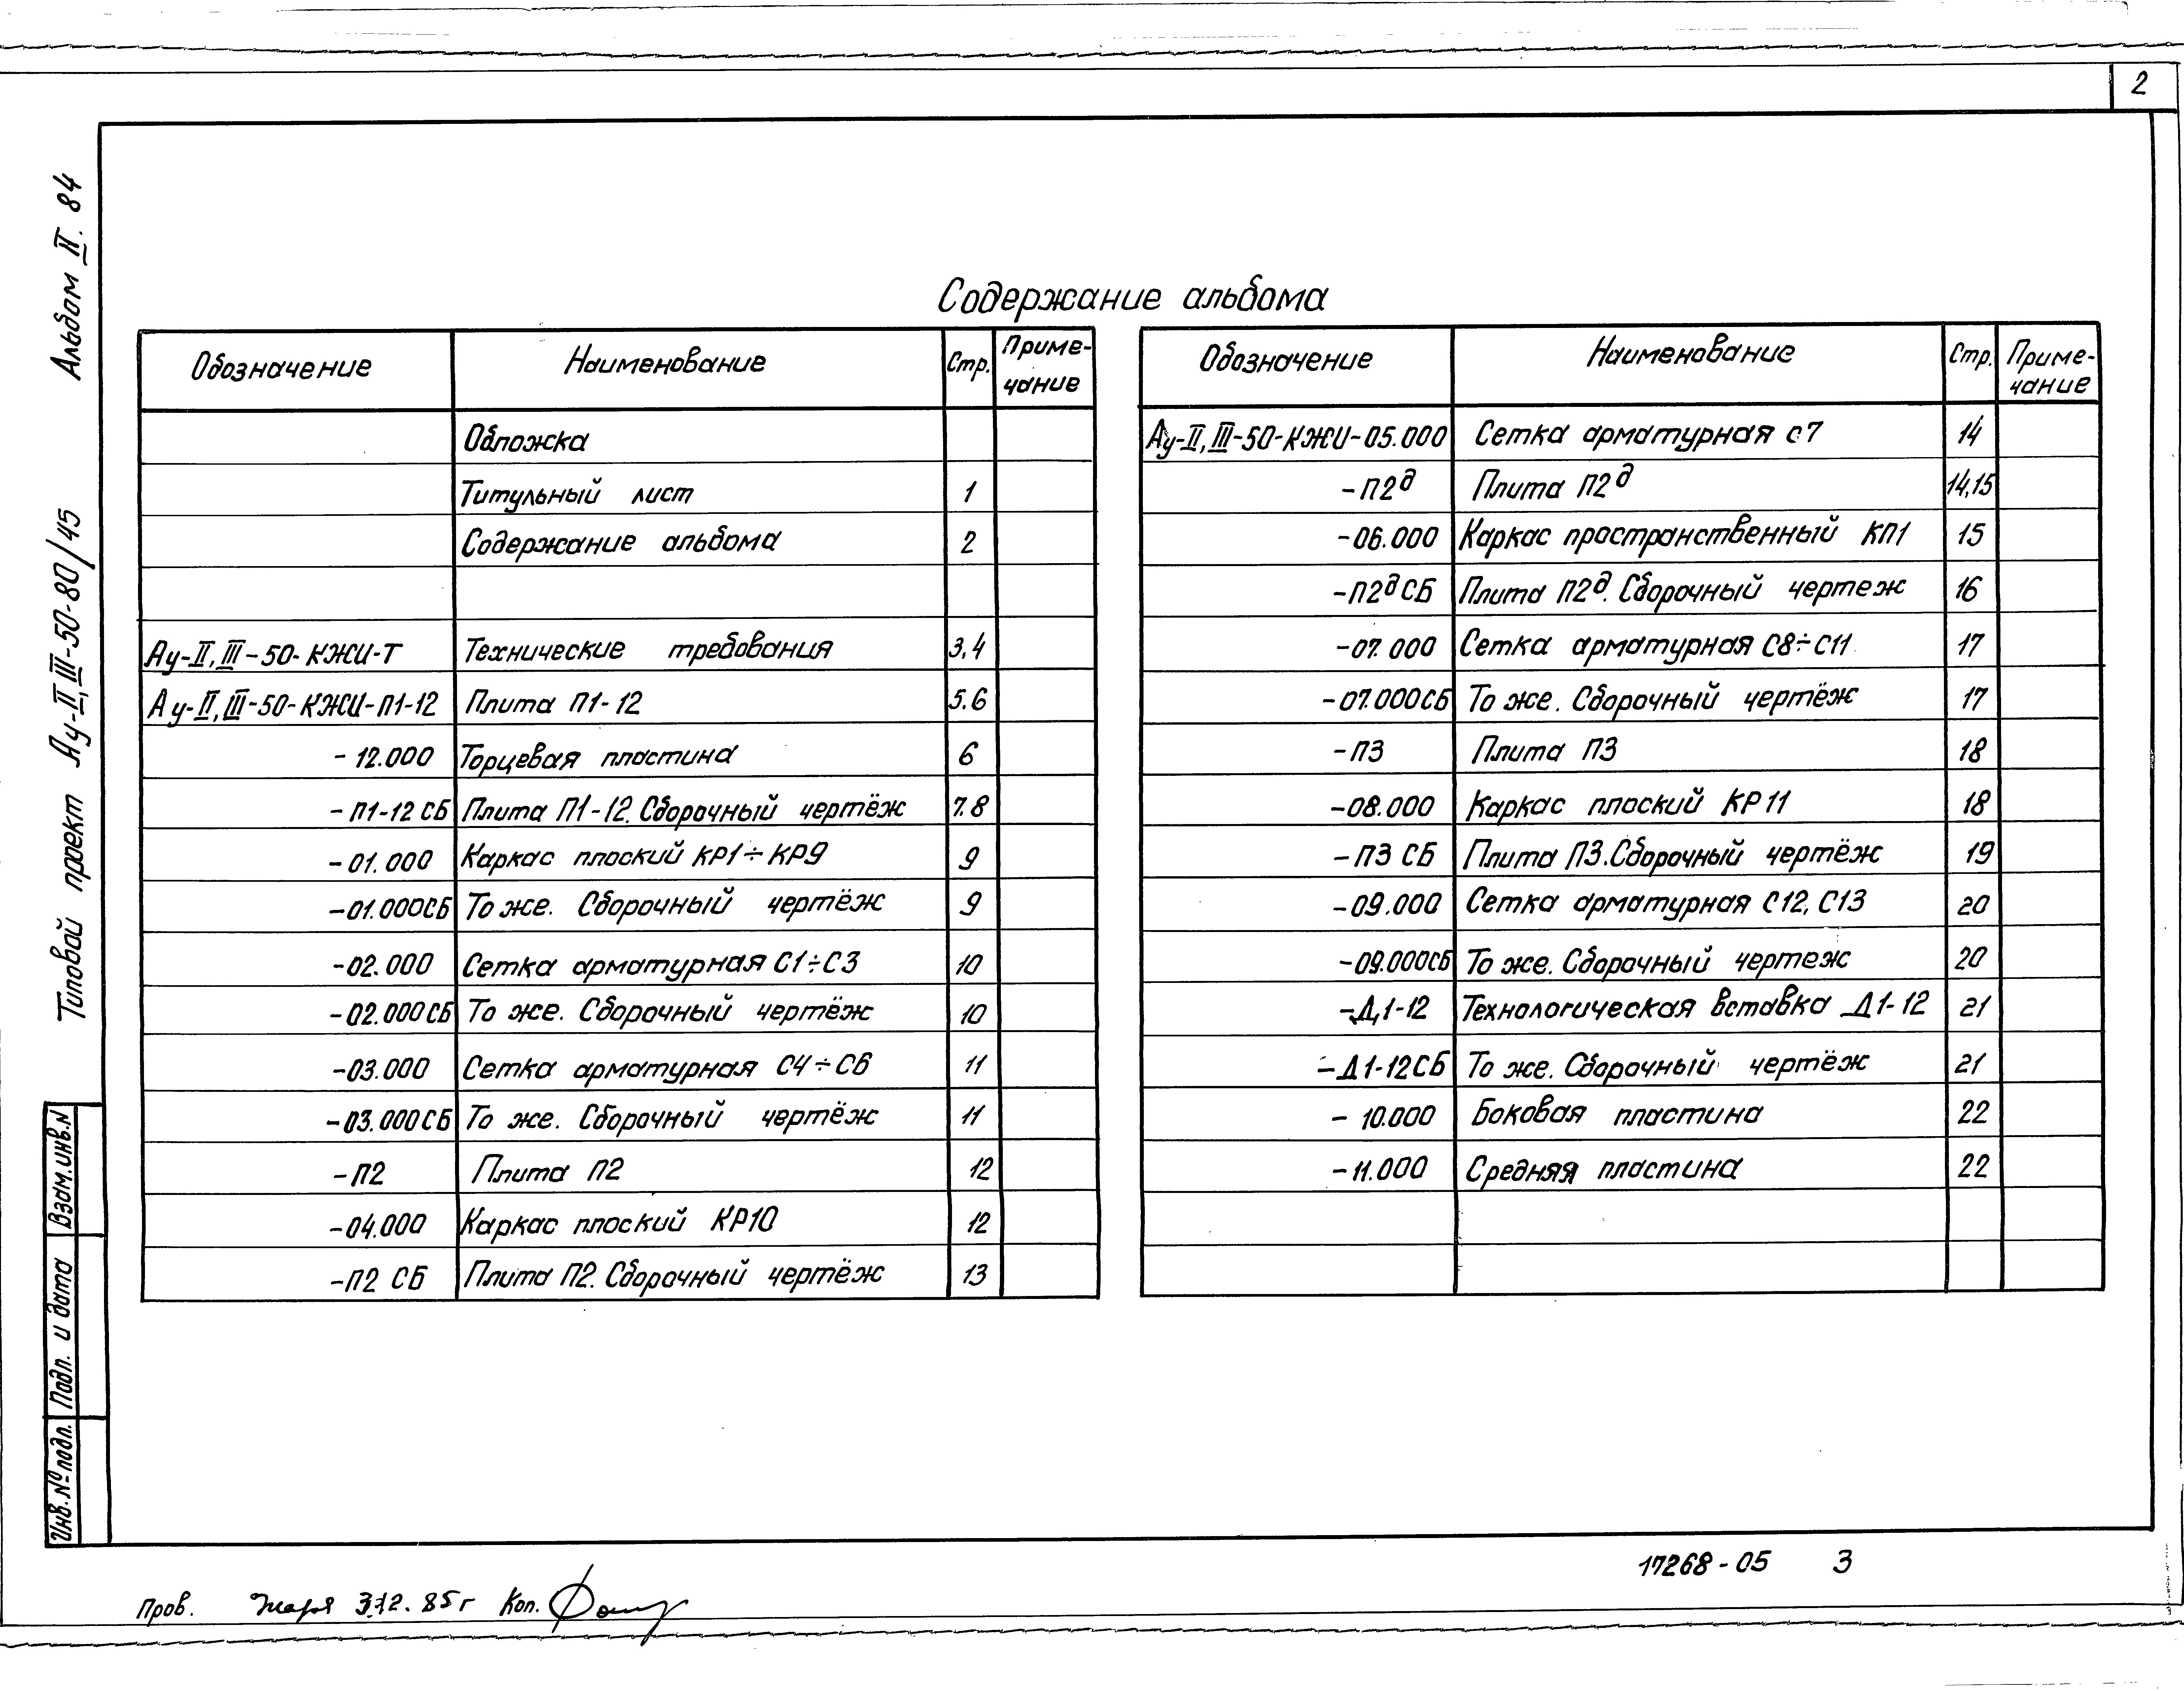 2
Альбом II. 84
Типовой проект Ау-II,III-50-80/45
Содержание альбома
Обозначение Наименование Стр. Приме-
чание
Обложка
Титульный лист 1
Содержание альбома 2
Ау-II,III-50-КЖИ-Т Технические требования 3,4
Ау-II,III-50-КЖИ-П1-12 Плита П1-12 5.6
-12.000 Торцевая пластина 6
-П1-12 СБ Плита П1-12. Сборочный чертёж 7.8
-01.000 Каркас плоский КР1÷КР9 9
-01.000СБ То же. Сборочный чертёж 9
-02.000 Сетка арматурная С1÷С3 10
-02.000СБ То же. Сборочный чертёж 10
-03.000 Сетка арматурная С4÷С6 11
-03.000СБ То же. Сборочный чертёж 11
-П2 Плита П2 12
-04.000 Каркас плоский КР10 12
-П2 СБ Плита П2. Сборочный чертёж 13
Обозначение Наименование Стр. Приме-
чание
Ау-II,III-50-КЖИ-05.000 Сетка арматурная с7 14
-П2д Плита П2д 14,15
-06.000 Каркас пространственный КП1 15
-П2д СБ Плита П2д. Сборочный чертеж 16
-07.000 Сетка арматурная С8÷С11 17
-07.000СБ То же. Сборочный чертёж 17
-П3 Плита П3 18
-08.000 Каркас плоский КР11 18
-П3 СБ Плита П3. Сборочный чертёж 19
-09.000 Сетка арматурная С12, С13 20
-09.000СБ То же. Сборочный чертеж 20
-Д1-12 Технологическая вставка Д1-12 21
-Д1-12СБ То же. Сборочный чертёж 21
-10.000 Боковая пластина 22
-11.000 Средняя пластина 22
Взам.инв.N
Подп. и дата
Инв.№подл.
17268-05 3
Пров. 3.12.85г Коп.